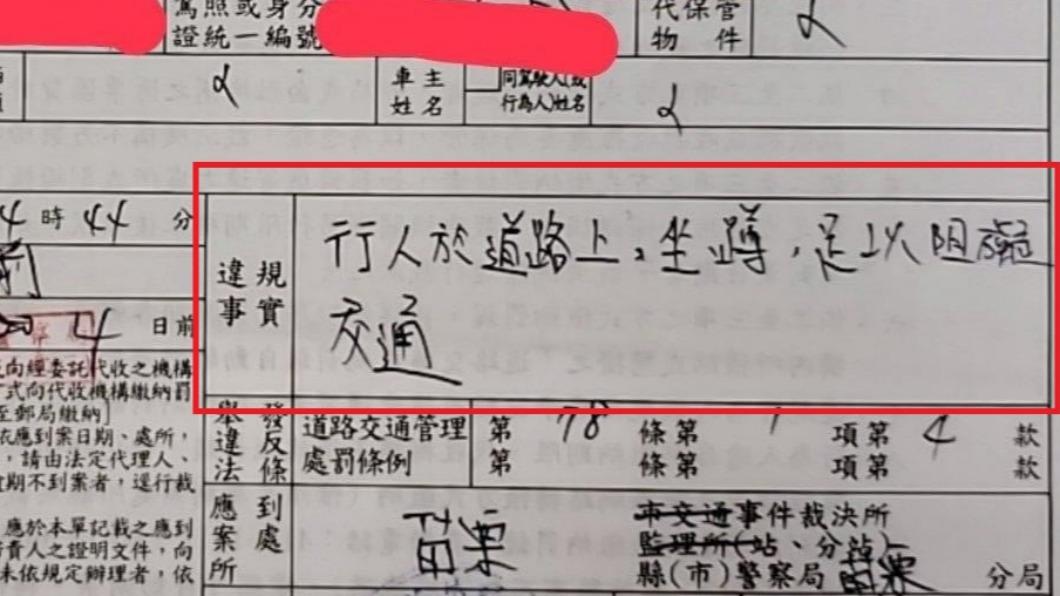 駕照或身分
證統一編號
代保管
物件
車主
姓名
同駕駛人(或
行為人)姓名
4時44分
違規
事實
行人於道路上,坐蹲,足以阻礙
交通
日前
向經委託代收之機構
式向代收機構繳納罰
至郵局繳納]
依應到案日期、處所,
,請由法定代理人、
期不到案者,逕行裁
舉發
違反
法條
道路交通管理
處罰條例
第78條第1項第4款
第 條第 項第 款
應到
案處
所
苗栗
市交通事件裁決所
監理所(站、分站)
縣(市)警察局苗栗分局
應於本單記載之應到
責人之證明文件,向
未依規定辦理者,依